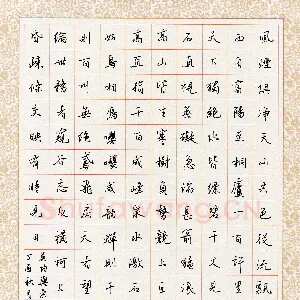 風煙俱淨天山共色從流飄
西自富陽至桐廬一百許里
天下獨絕水皆縹碧千丈見
石直視無礙急湍甚箭猛浪
高山皆生寒樹負勢競上互
高直指千百成峰泉水激石
好鳥相鳴嚶嚶成韻蟬則千
則百叫無絕鳶飛戾天者望
綸世務者窺谷忘反橫柯上
昏疏條交映有時見日
吳均與
丁酉秋